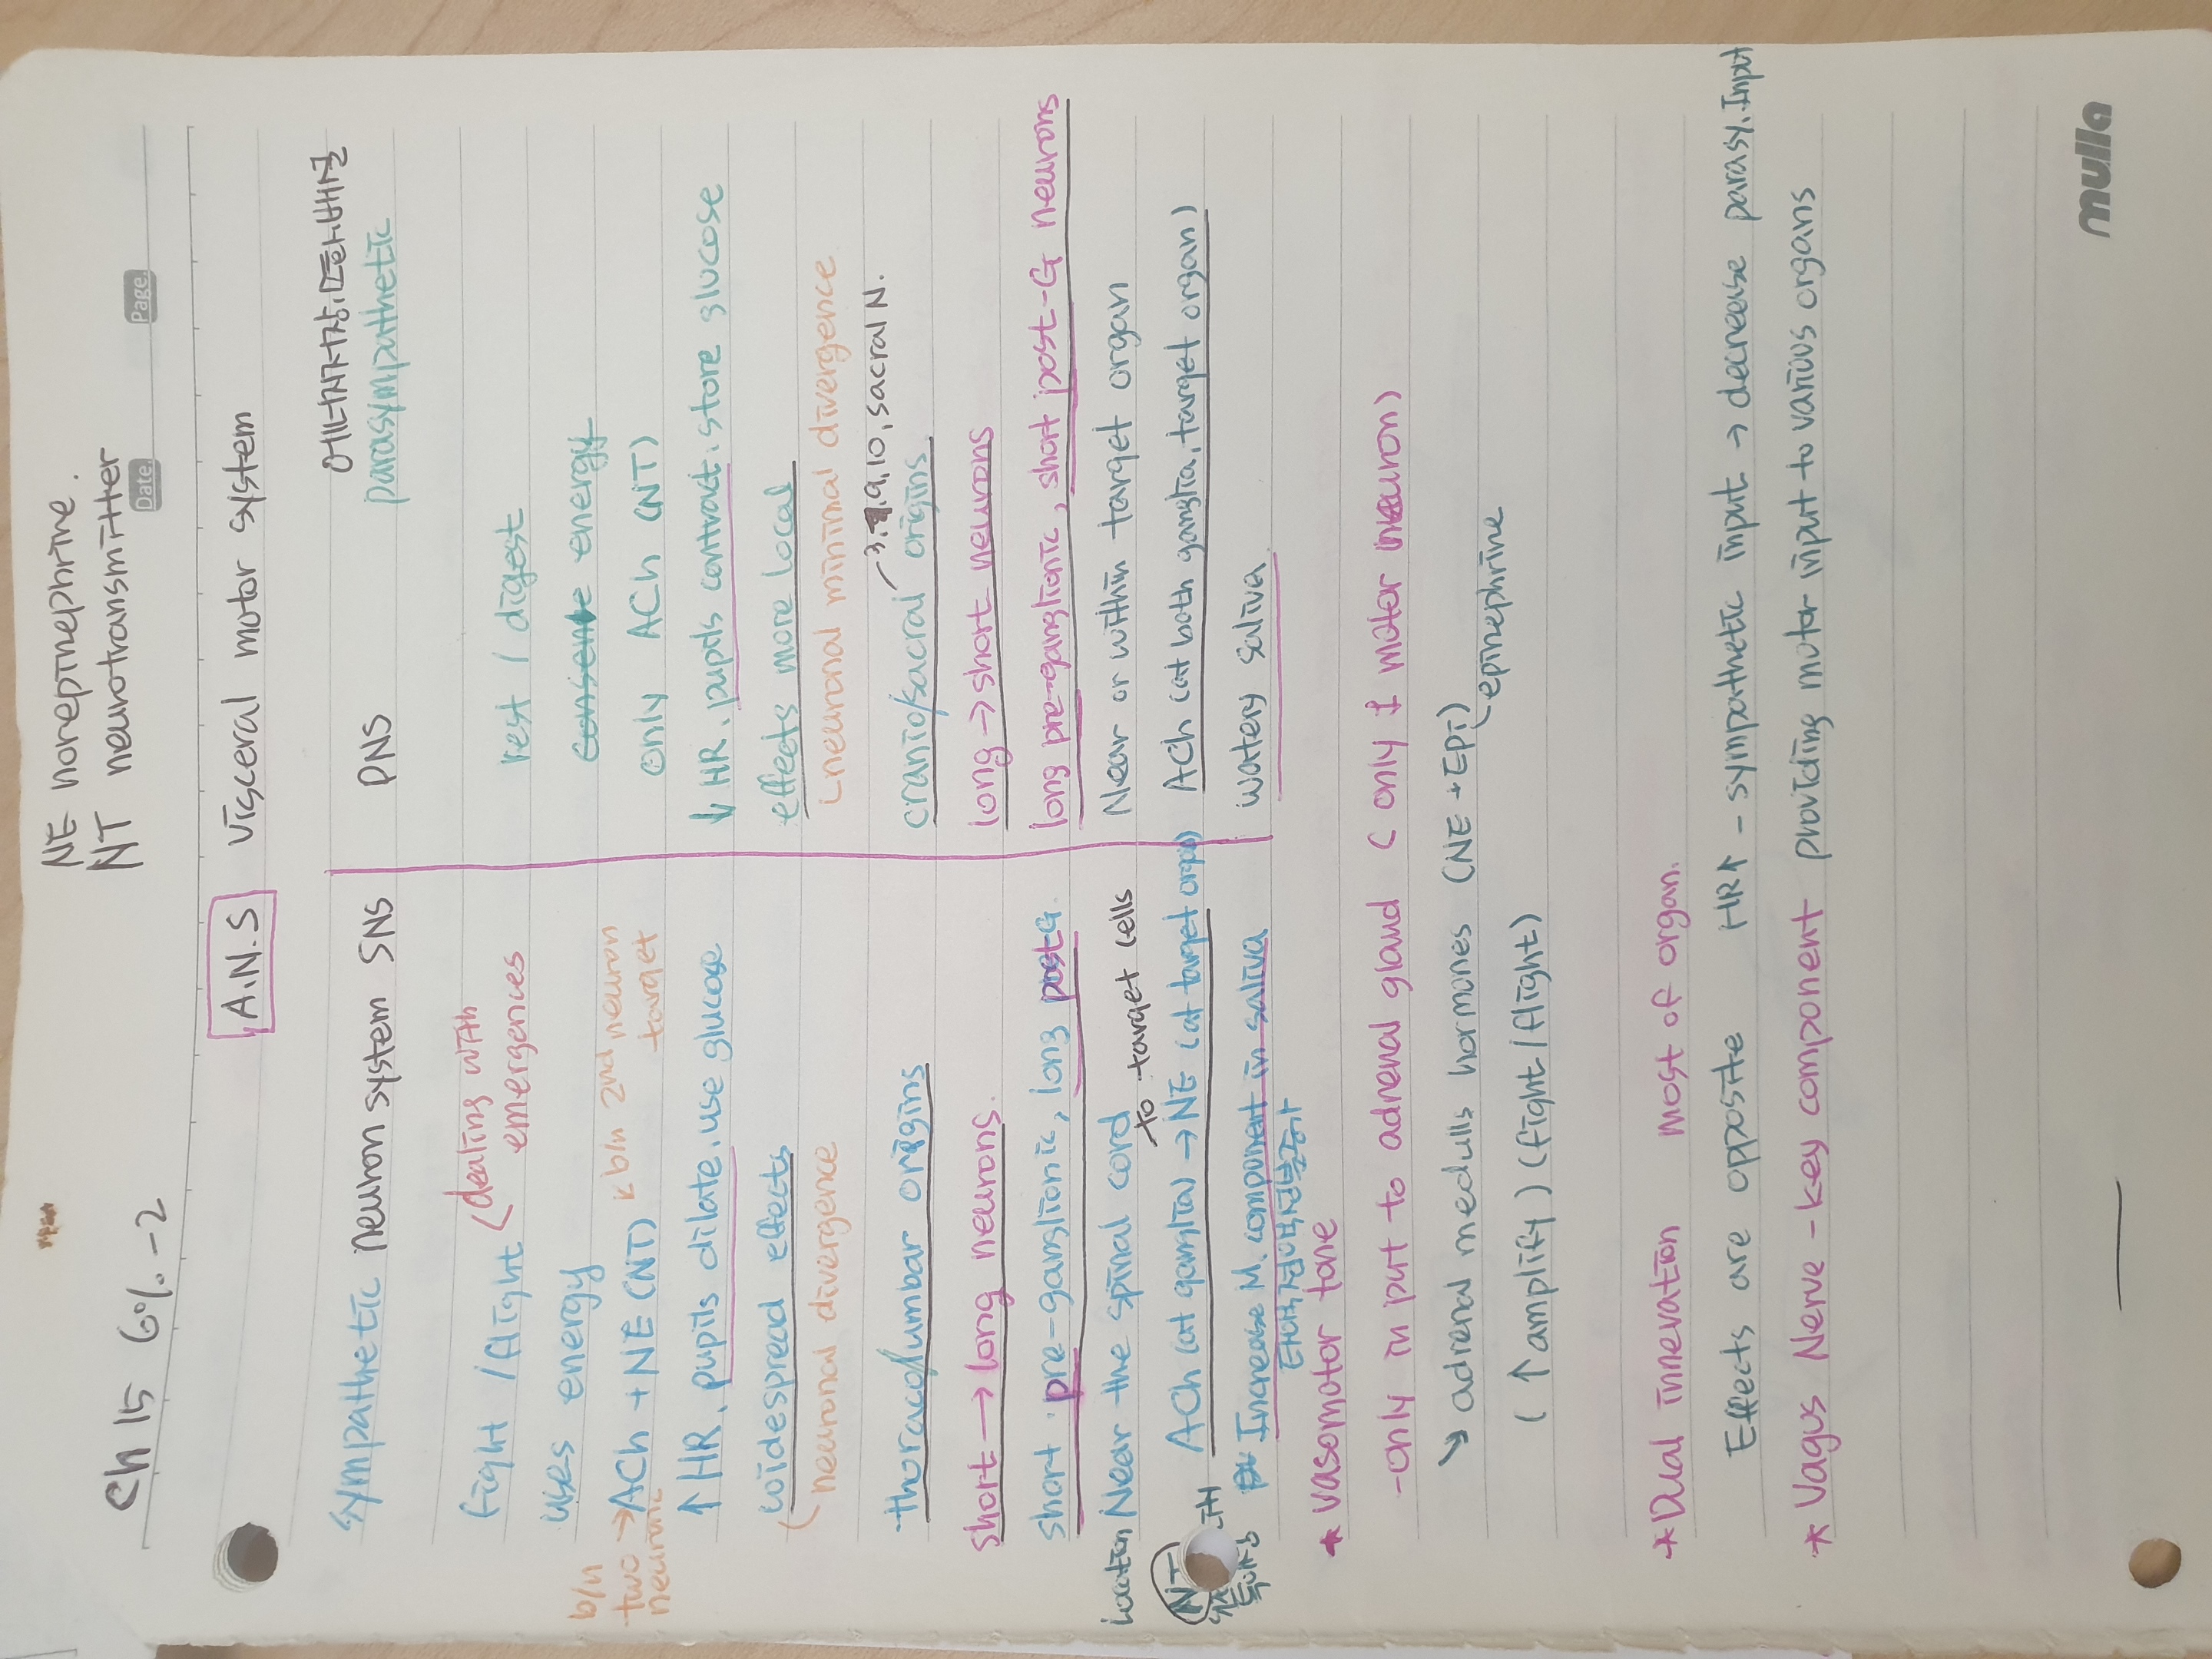 NE norepinephrine.
Ch 15 6%.-2 NT neurotransmitter
Date. Page.
A.N.S visceral motor system
에너지저장.
sympathetic neuron system SNS PNS parasympathetic
(dealing with
fight / flight emergences rest / digest
uses energy conserve energy
b/n
two → ACh + NE (NT) < b/n 2nd neuron only ACh (NT)
neuronic target
↑ HR. pupils dilate. use glucose ↓ HR. pupils contract. store glucose
widespread effects effects more local
neuronal divergence neuronal minimal divergence
3.7.9.10, sacral N.
thoraco/lumbar origins cranio/sacral origins
short → long neurons. long → short neurons
short pre-ganglionic, long postG. long pre-ganglionic, short post-G neurons
Location Near the spinal cord Near or within target organ
to target cells
NT ACh (at ganglia) → NE (at target organ) ACh (at both ganglia, target organ)
Increase M. component in saliva watery saliva
* vasomotor tone
-only in put to adrenal gland (only 1 motor neuron)
↘ adrenal medulls hormones (NE + EPI)
epinephrine
(↑ amplify) (fight / flight)
* Dual innervation most of organ.
Effects are opposite HR↑ - sympathetic input → decrease parasy. Input
* Vagus Nerve - key component providing motor input to various organs
mulla